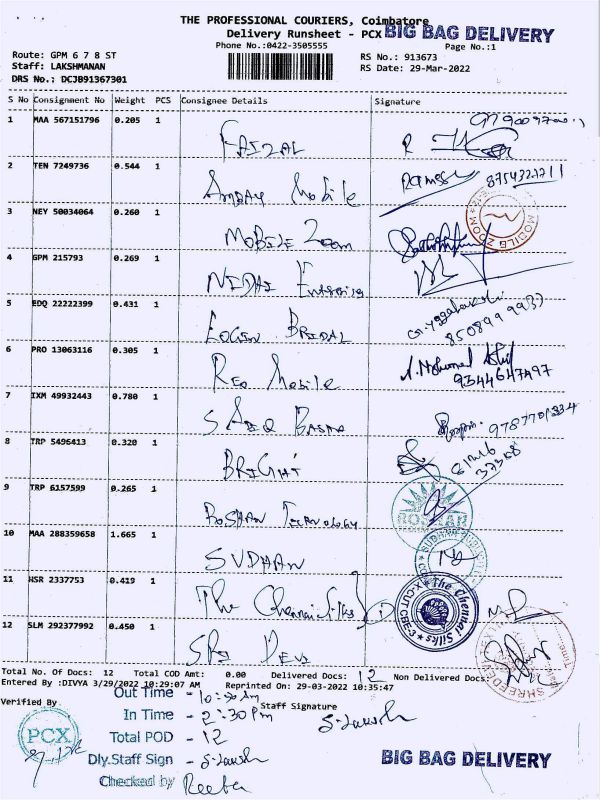 THE PROFESSIONAL COURIERS, Coimbatore
Delivery Runsheet - PCX BIG BAG DELIVERY
Phone No.:0422-3505555 Page No.:1
Route: GPM 6 7 8 ST RS No.: 913673
Staff: LAKSHMANAN RS Date: 29-Mar-2022
DRS No.: DCJB91367301
S No Consignment No Weight PCS Consignee Details Signature
1 MAA 567151796 0.205 1 FAIZAL
2 TEN 7249736 0.544 1 Amman Mobile Ramesh 8754322211
3 NEY 50034064 0.260 1 MOBILE Zoom MOBILE ZOOM
4 GPM 215793 0.269 1 NIDHI Enterprise
5 EDQ 22222399 0.431 1 LOGIN BRIDAL
6 PRO 13063116 0.305 1 Reo Mobile A. Mohamed 9344647497
7 IXM 49932443 0.780 1
8 TRP 5496413 0.320 1 BRIGHT
9 TRP 6157599 0.265 1 ROSHAN Technology ROSHAN
10 MAA 288359658 1.665 1 SUDHAN
11 HSR 2337753 0.419 1 The Chennai Silks The Chennai Silks
12 SLM 292377992 0.450 1 SRI Devi
Total No. Of Docs: 12 Total COD Amt: 0.00 Delivered Docs: 12 Non Delivered Docs:
Entered By :DIVYA 3/29/2022 10:29:07 AM Reprinted On: 29-03-2022 10:35:47
Out Time - 10:50 Am
Verified By Staff Signature
In Time - 2:30 Pm
PCX
Total POD - 12
Dly.Staff Sign -
BIG BAG DELIVERY
Checked by Reeta